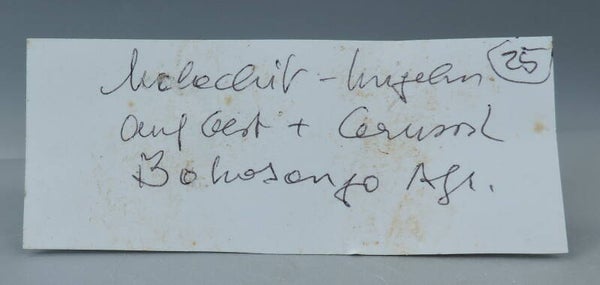 Malachit - Kugeln 25
auf Gest + Cerussit
Bokosongo Afr.